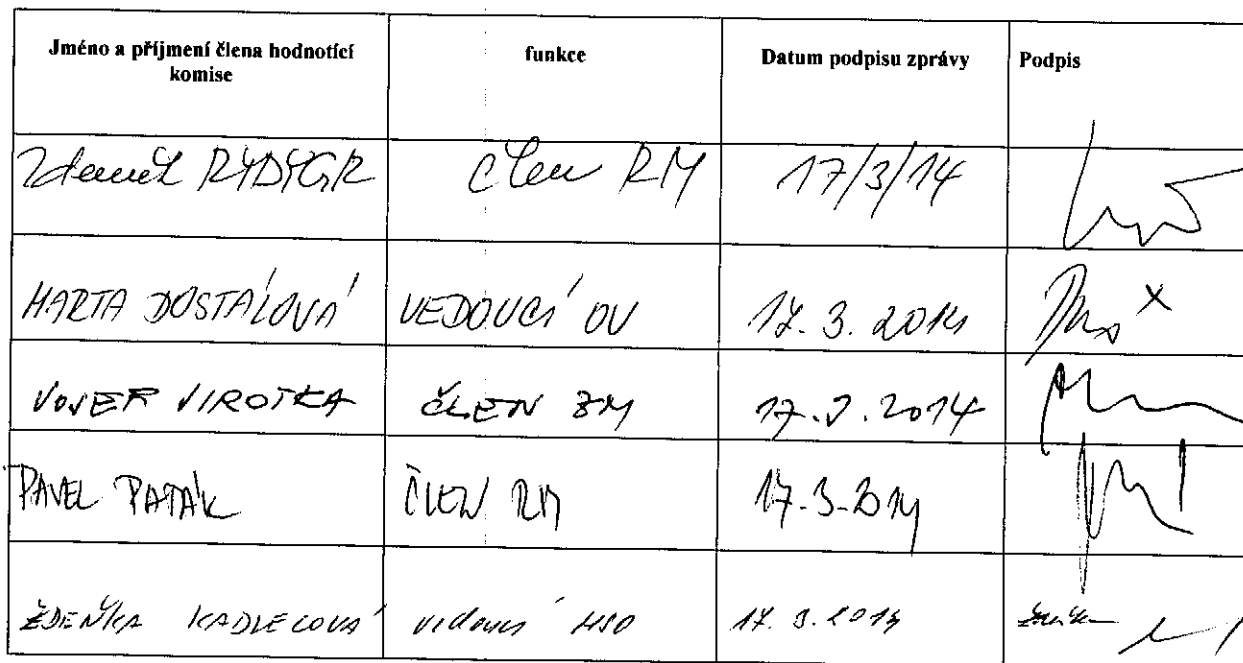 Jméno a příjmení člena hodnotící
komise
funkce
Datum podpisu zprávy
Podpis
Zdeněk RYDYGR člen RM 17/3/14
MARTA DOSTÁLOVÁ VEDOUCÍ OV 17. 3. 2014
VIROTKA ČLEN ZM 17.3.2014
PAVEL PATÁK ČLEN RM 17-3-2014
ZDEŇKA KADLECOVÁ vedoucí HSO 17. 3. 2014